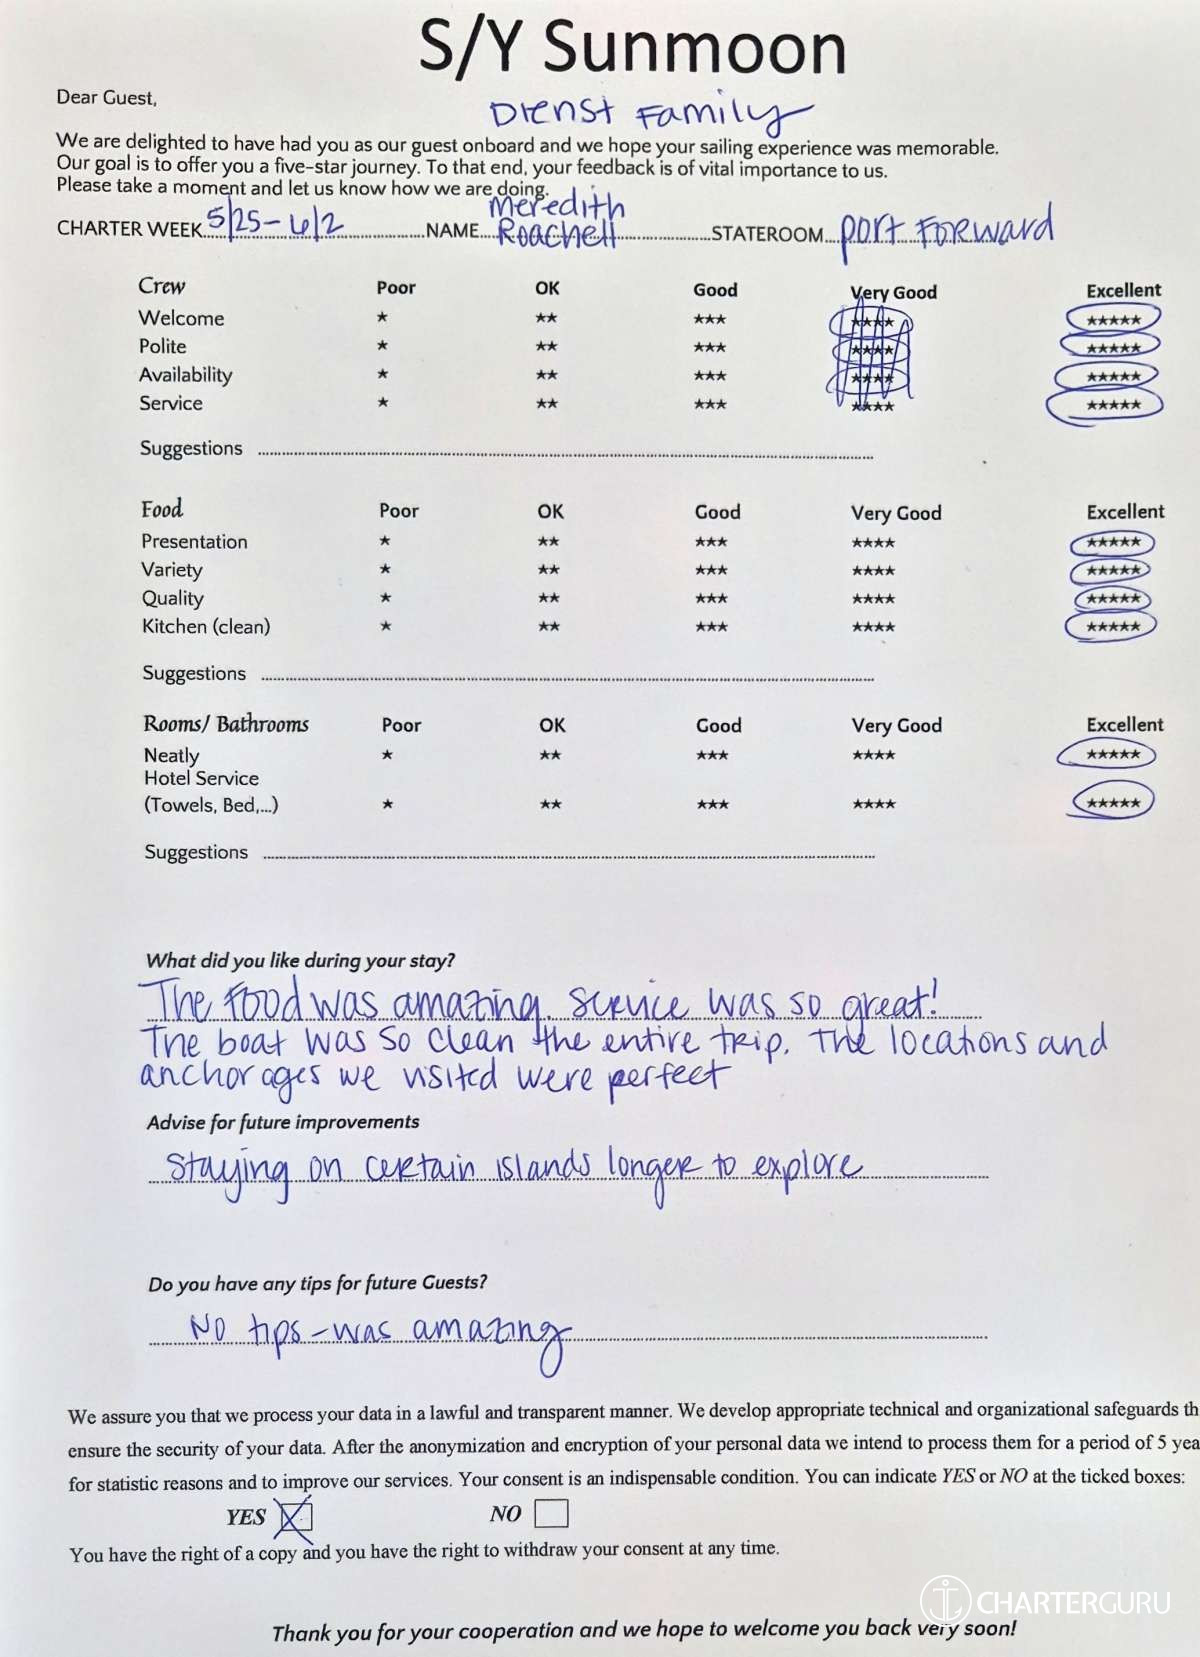 S/Y Sunmoon
Dear Guest,
Dienst Family
We are delighted to have had you as our guest onboard and we hope your sailing experience was memorable.
Our goal is to offer you a five-star journey. To that end, your feedback is of vital importance to us.
Please take a moment and let us know how we are doing.
CHARTER WEEK 5/25-6/2 NAME Meredith Roachell STATEROOM Port Forward
Crew Poor OK Good Very Good Excellent
Welcome ★ ★★ ★★★ ★★★★ ★★★★★
Polite ★ ★★ ★★★ ★★★★ ★★★★★
Availability ★ ★★ ★★★ ★★★★ ★★★★★
Service ★ ★★ ★★★ ★★★★ ★★★★★
Suggestions
Food Poor OK Good Very Good Excellent
Presentation ★ ★★ ★★★ ★★★★ ★★★★★
Variety ★ ★★ ★★★ ★★★★ ★★★★★
Quality ★ ★★ ★★★ ★★★★ ★★★★★
Kitchen (clean) ★ ★★ ★★★ ★★★★ ★★★★★
Suggestions
Rooms/ Bathrooms Poor OK Good Very Good Excellent
Neatly ★ ★★ ★★★ ★★★★ ★★★★★
Hotel Service
(Towels, Bed,...) ★ ★★ ★★★ ★★★★ ★★★★★
Suggestions
What did you like during your stay?
The food was amazing. Service was so great!
The boat was so clean the entire trip. The locations and
anchorages we visited were perfect
Advise for future improvements
Staying on certain islands longer to explore
Do you have any tips for future Guests?
No tips - was amazing
We assure you that we process your data in a lawful and transparent manner. We develop appropriate technical and organizational safeguards th
ensure the security of your data. After the anonymization and encryption of your personal data we intend to process them for a period of 5 yea
for statistic reasons and to improve our services. Your consent is an indispensable condition. You can indicate YES or NO at the ticked boxes:
YES NO
You have the right of a copy and you have the right to withdraw your consent at any time.
CHARTERGURU
Thank you for your cooperation and we hope to welcome you back very soon!